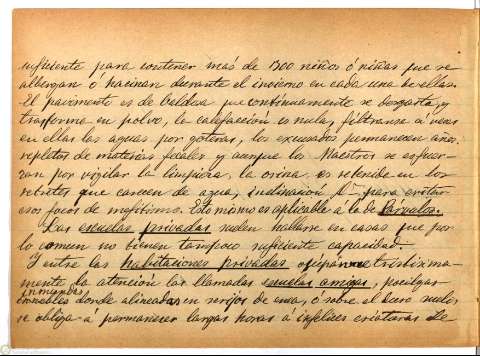 suficiente para contener más de 1300 niños ó niñas que se
albergan ó hacinan durante el invierno en cada una de ellas.
El pavimento es de baldosa que continuamente se desgasta y
trasforma en polvo, la calefacción es nula, filtranse á veces
en ellas las aguas por goteras, los excusados permanecen años
repletos de materias fecales y aunque los Maestros se esfuer-
zan por vigilar la limpieza, la orina es retenida en los
retretes que carecen de agua, inclinación &ª para evitar
esos focos de mefitismo. Esto mismo es aplicable á la de Párvulos.
Las escuelas privadas suelen hallarse en casas que por
lo comun no tienen tampoco suficiente capacidad.
Y entre las habitaciones privadas ocupan tristisima-
mente la atención las llamadas escuelas amigas,
inmundos
donde alineadas en de enea, ó sobre el duro suelo
se obliga á permanecer largas horas á infelices criaturas de